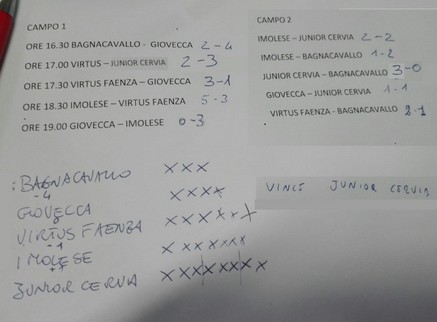 CAMPO 1
ORE 16.30 BAGNACAVALLO - GIOVECCA 2-4
ORE 17.00 VIRTUS – JUNIOR CERVIA 2-3
ORE 17.30 VIRTUS FAENZA – GIOVECCA 3-1
ORE 18.30 IMOLESE – VIRTUS FAENZA 5-3
ORE 19.00 GIOVECCA – IMOLESE 0-3
CAMPO 2
IMOLESE – JUNIOR CERVIA 2-2
IMOLESE – BAGNACAVALLO 1-2
JUNIOR CERVIA – BAGNACAVALLO 3-0
GIOVECCA – JUNIOR CERVIA 1-1
VIRTUS FAENZA - BAGNACAVALLO 2-1
BAGNACAVALLO XXX
-4
GIOVECCA XXXX
VIRTUS FAENZA XXXXXX
-1
IMOLESE XXXXXXX
JUNIOR CERVIA XXXXXXXX
VINCE JUNIOR CERVIA